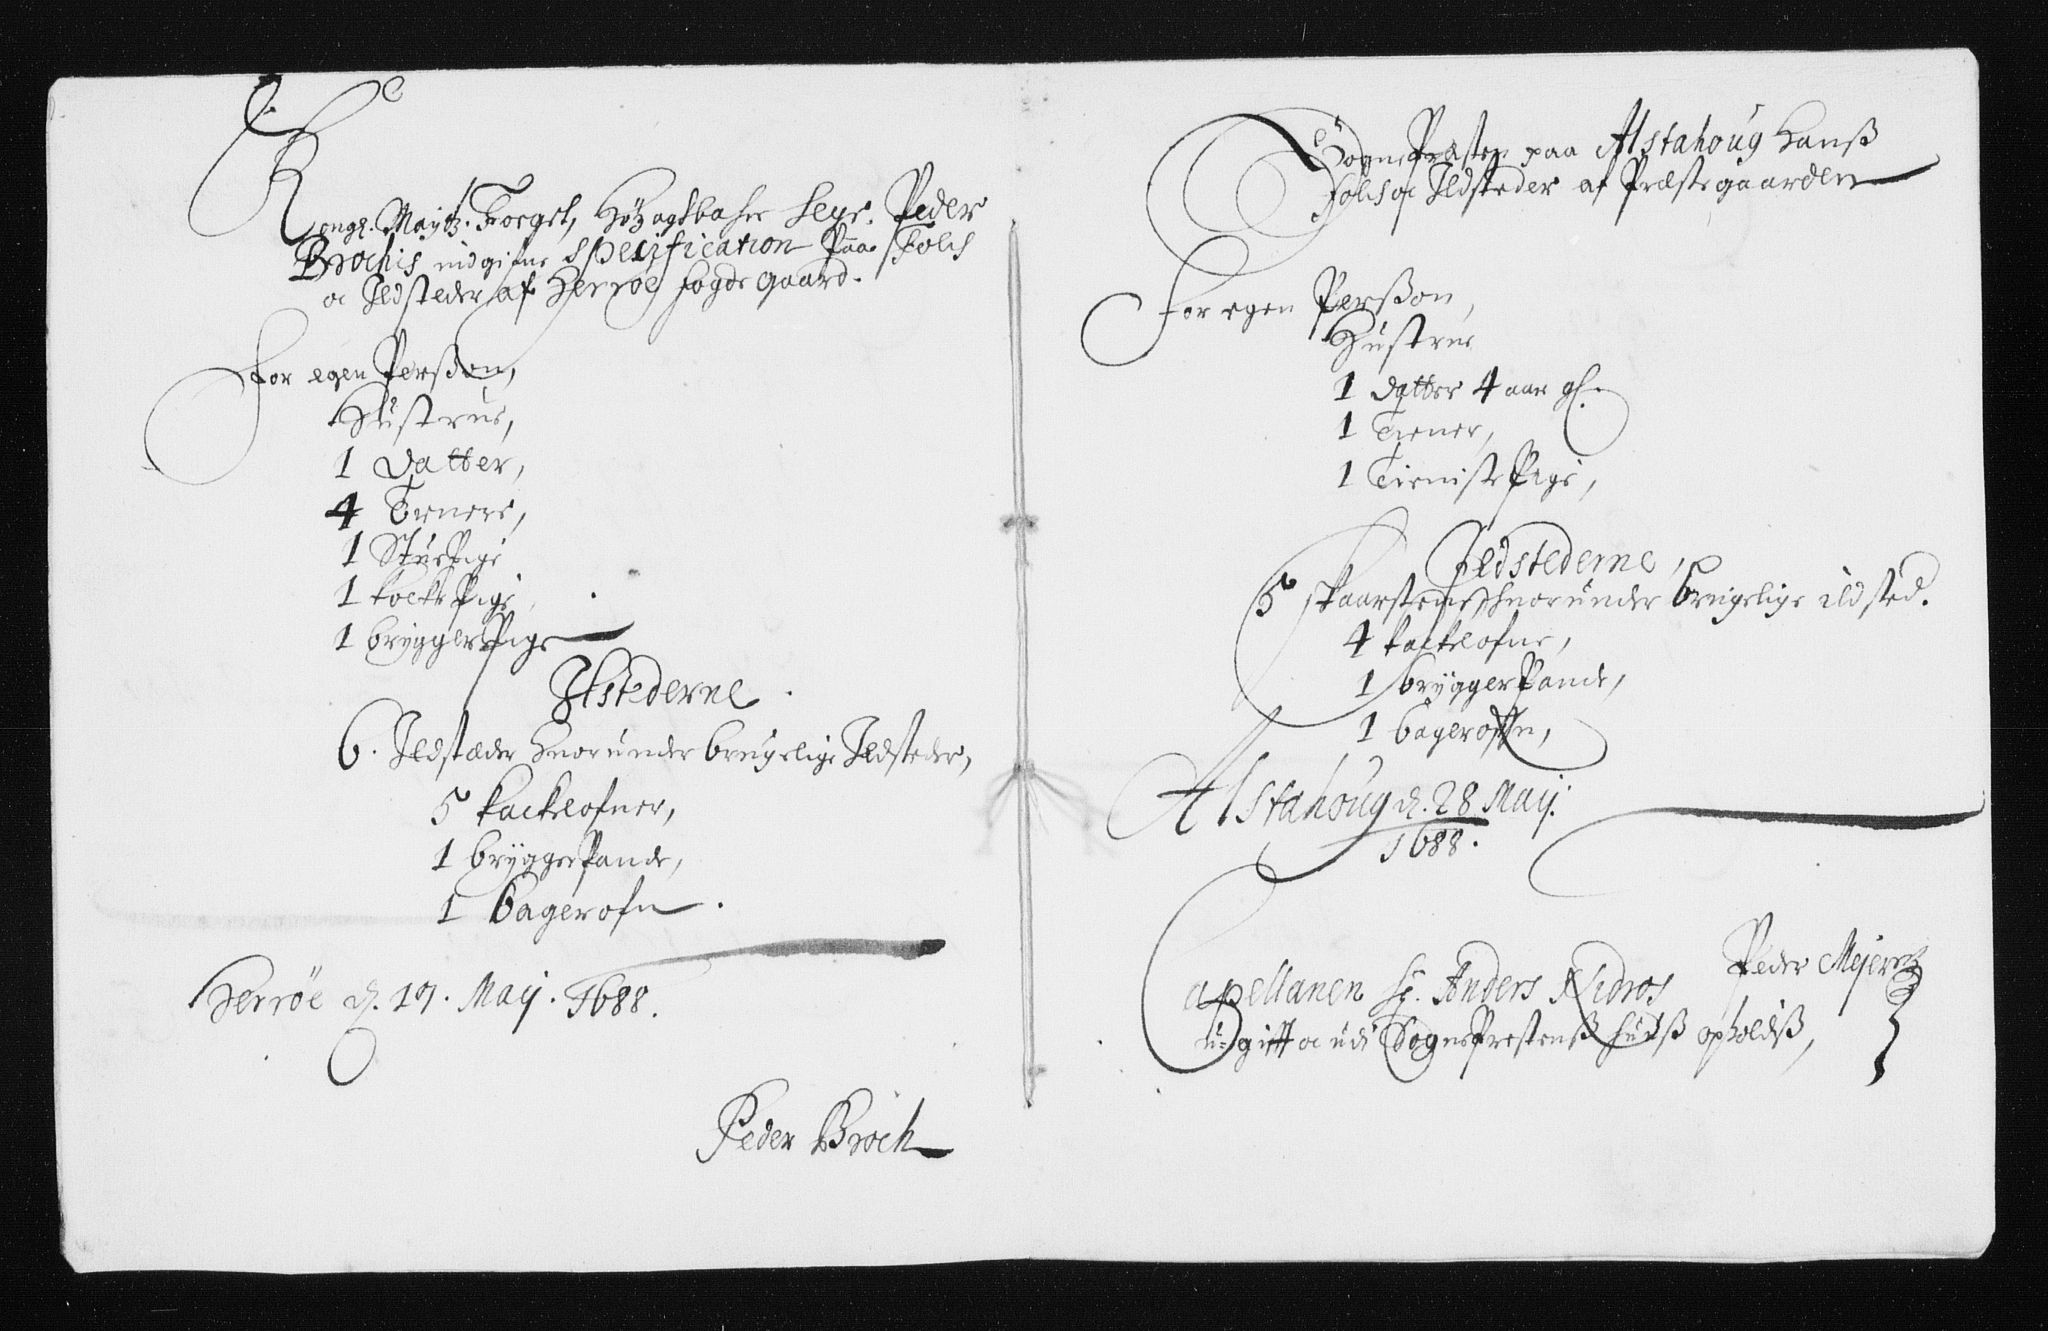 Kongl. Maytz. Foeget, Høÿagtbahre Seyr. Peder
Brochis indgifne Specification Paa Folch
oc Ildsteder af Herrøe fogde gaard.
For egen Perßon,
Hustrue,
1 Datter,
4 Tienere,
1 StuePige
1 kocke Pige
1 brygger Pige
Ilstederne
6. Ildstæder hvorunder brugelige Ildsteder,
5 kackelofner,
1 brÿgger Pande,
1 bagerofn.
Herrøe d. 17. Maij. 1688.
Peder Broch
SognePræsten paa Alstahoug Hanß
folch oc Ildsteder af Præstegaarden
For egen Perßon,
Hustrue
1 datter 4 aar gl.
1 Tiener,
1 Tieniste Pige,
Ildstederne,
5 skaarstene hvorunder brugelige ildsted.
4 kackelofne,
1 brÿgger Pande,
1 bageroffn,
Alstahoug d. 28 Maij.
1688.
Peder Mejer
Capellanen Hr. Anders Nidros
u-gifft oc udi SognePrestenß huuß opholdß,